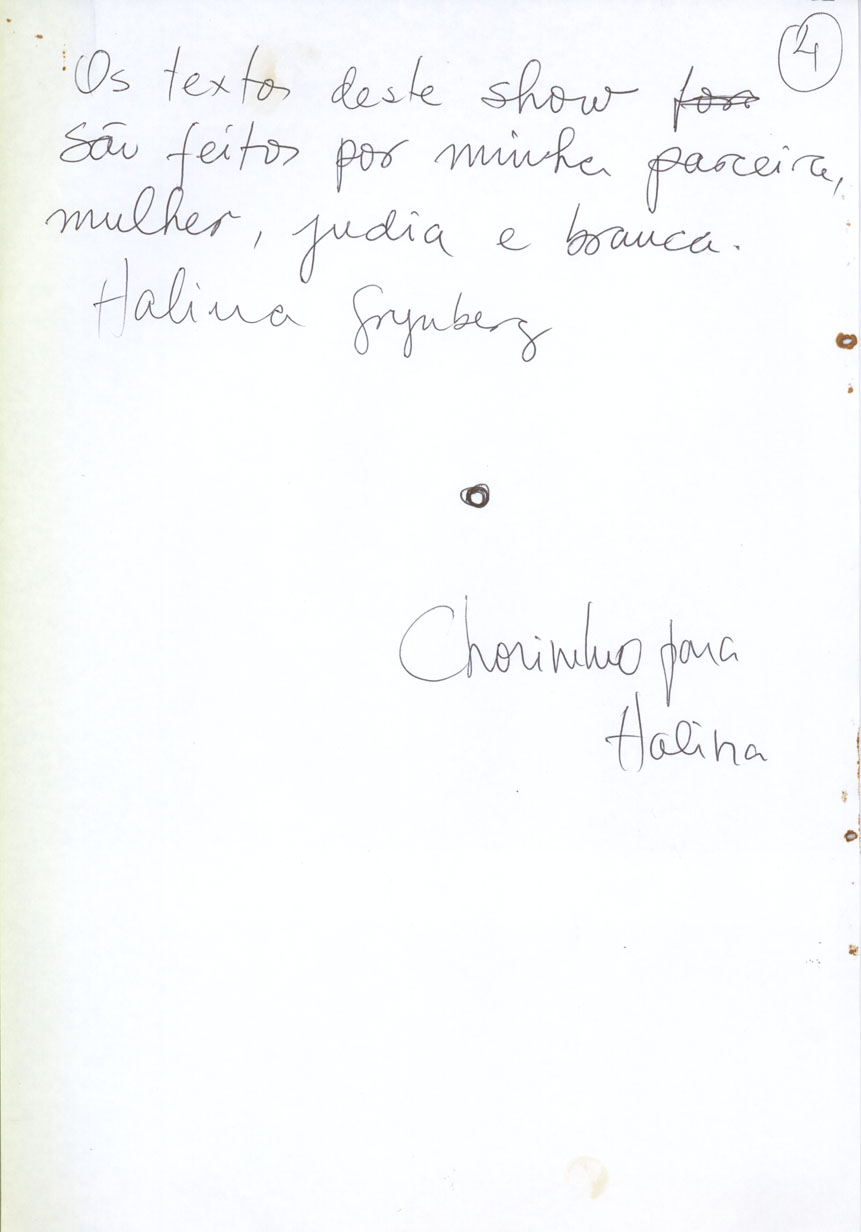 4
Os textos deste show for
são feitos por minha parceira,
mulher, judia e branca.
Halina Grynberg
Chorinho para
Halina